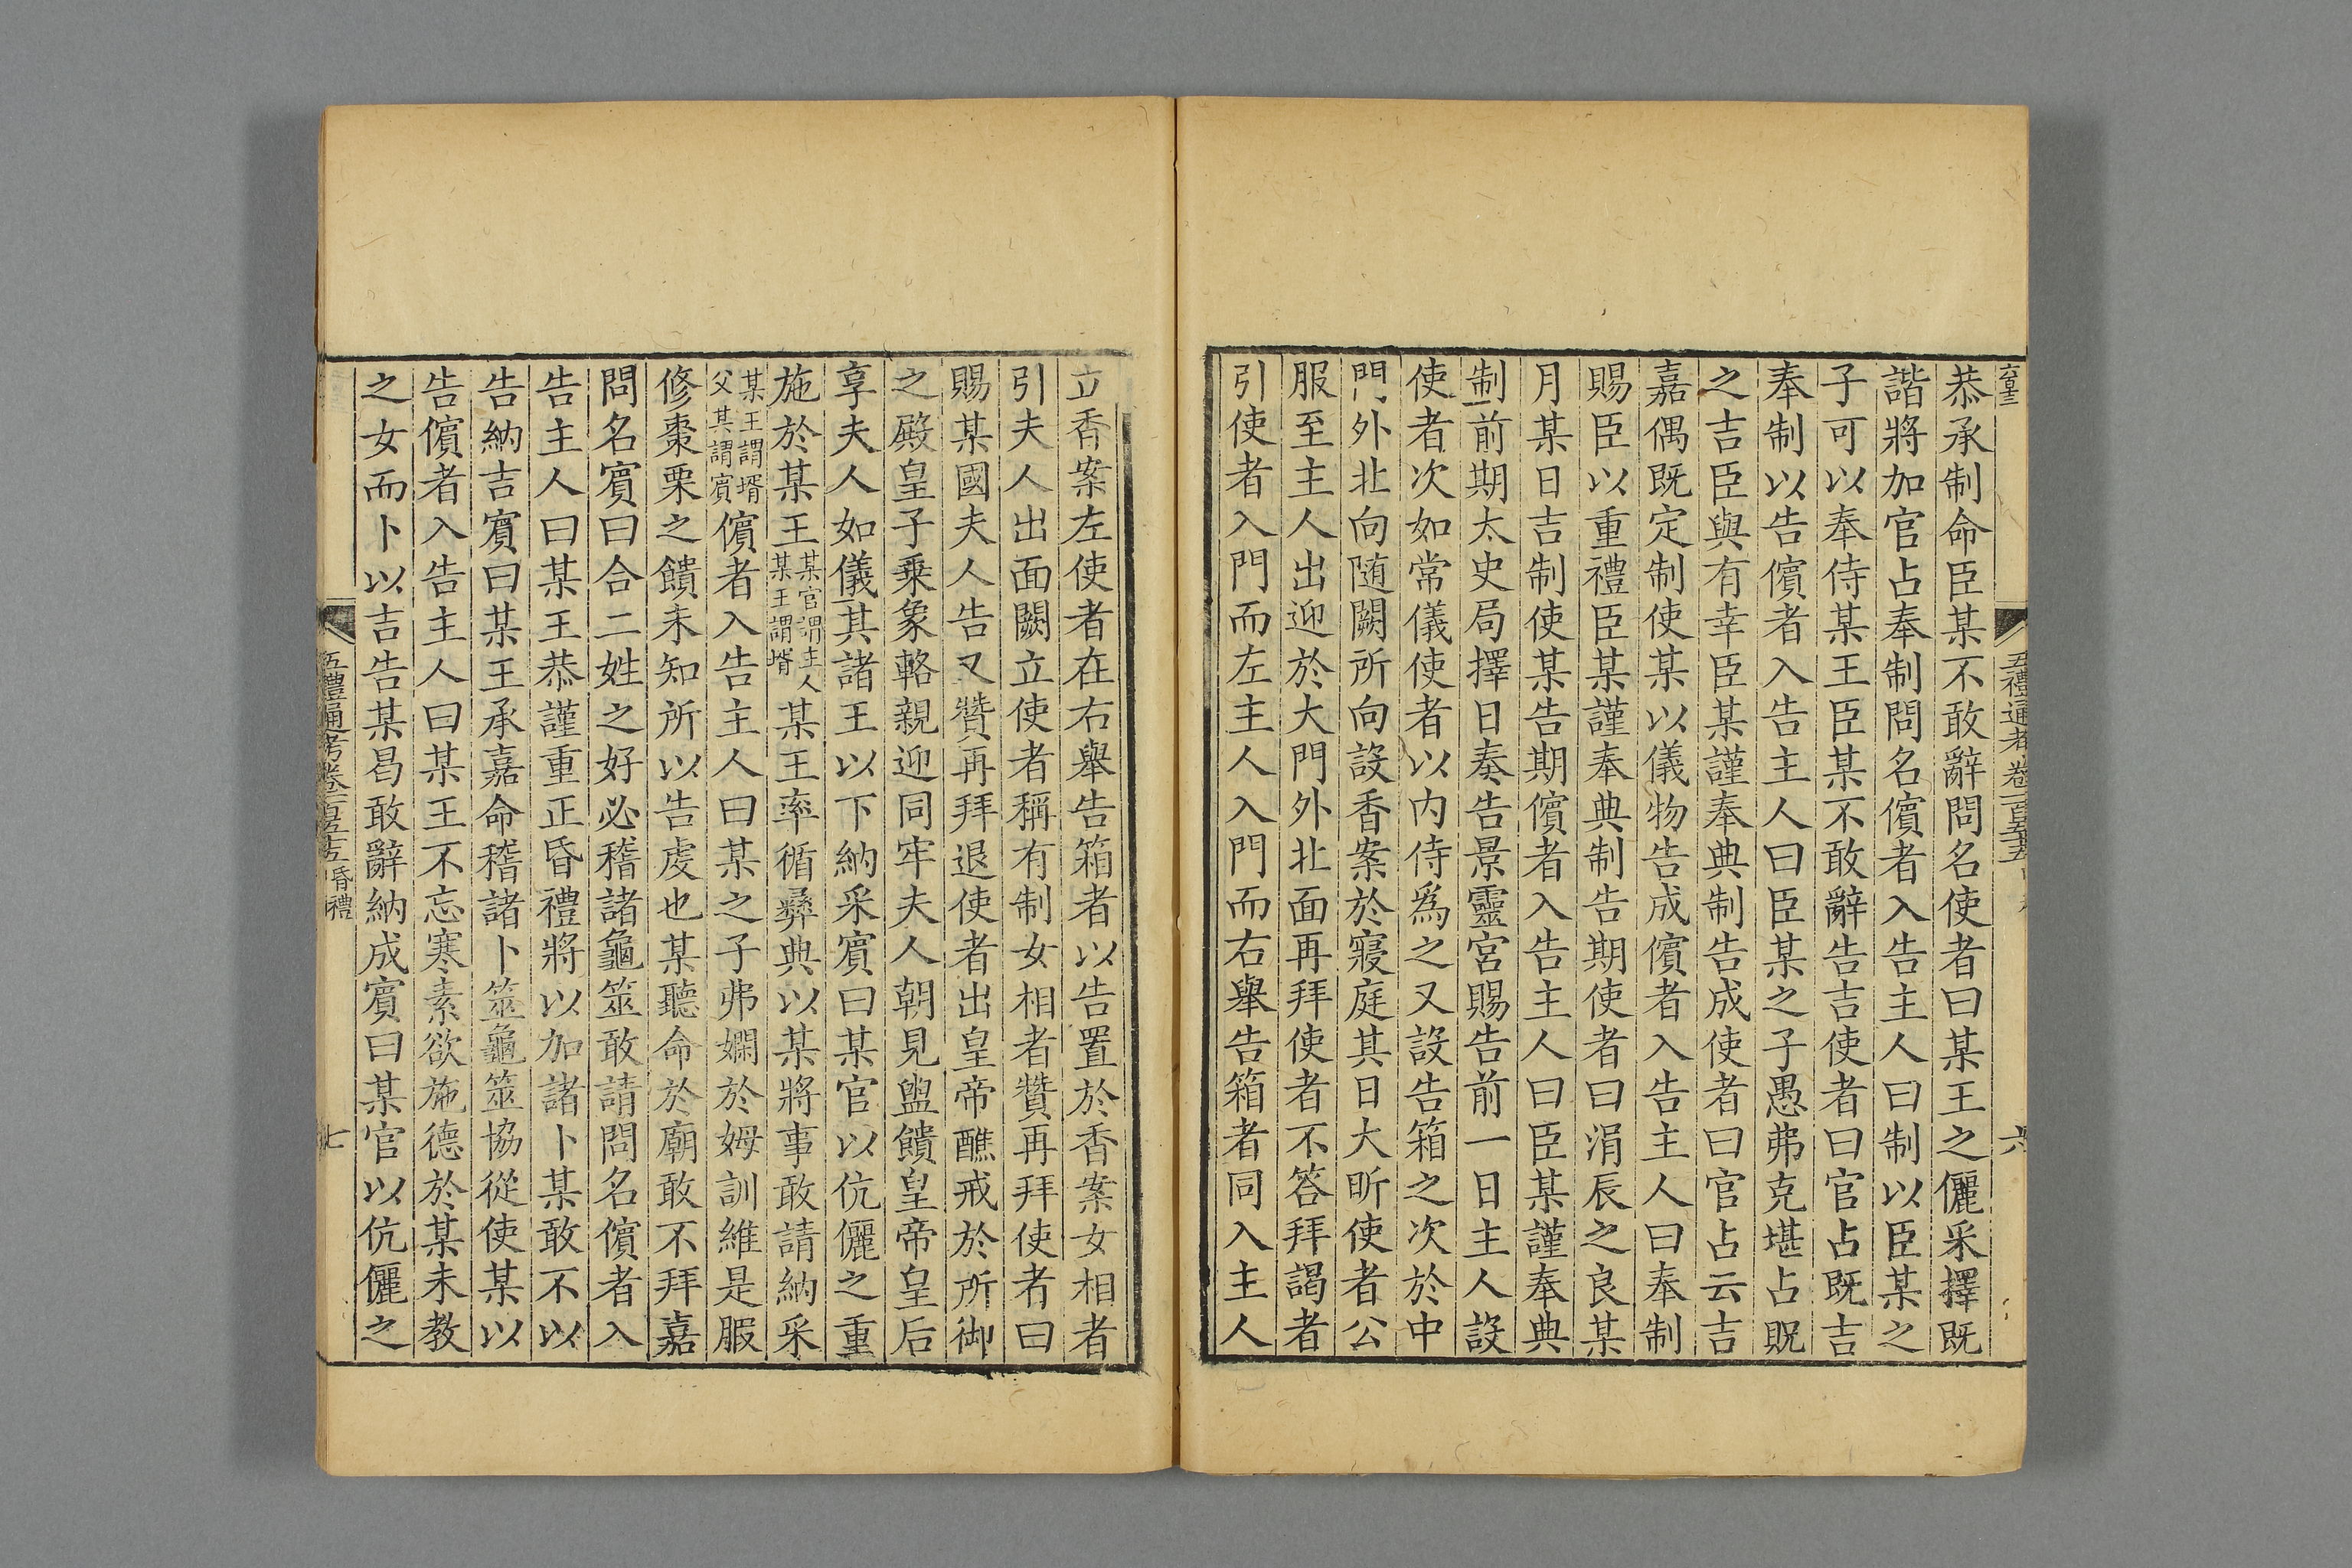 五禮通考卷一百五十五
六
恭承制命臣某不敢辭問名使者曰某王之儷采擇既
諧將加官占奉制問名儐者入告主人曰制以臣某之
子可以奉侍某王臣某不敢辭告吉使者曰官占既吉
奉制以告儐者入告主人曰臣某之子愚弗克堪占貺
之吉臣與有幸臣某謹奉典制告成使者曰官占云吉
嘉偶既定制使某以儀物告成儐者入告主人曰奉制
賜臣以重禮臣某謹奉典制告期使者曰涓辰之良某
月某日吉制使某告期儐者入告主人曰臣某謹奉典
制前期太史局擇日奏告景靈宮賜告前一日主人設
使者次如常儀使者以内侍爲之又設告箱之次於中
門外北向随闕所向設香案於寢庭其日大昕使者公
服至主人出迎於大門外北面再拜使者不答拜謁者
引使者入門而左主人入門而右舉告箱者同入主人
立香案左使者在右舉告箱者以告置於香案女相者
引夫人出面闕立使者稱有制女相者贊再拜使者曰
賜某國夫人告又贊再拜退使者出皇帝醮戒於所御
之殿皇子乗象輅親迎同牢夫人朝見盥饋皇帝皇后
享夫人如儀其諸王以下納采賓曰某官以伉儷之重
施於某王某官謂主人某王謂壻某王率循彝典以某將事敢請納采
某王謂壻父某謂賓儐者入告主人曰某之子弗嫻於姆訓維是服
修棗栗之饋未知所以告虔也某聽命於廟敢不拜嘉
問名賓曰合二姓之好必稽諸龜筮敢請問名儐者入
告主人曰某王恭謹重正昏禮將以加諸卜某敢不以
告納吉賓曰某王承嘉命稽諸卜筮龜筮協從使某以
告儐者入告主人曰某王不忘寒素欲施德於某未教
之女而卜以吉告某曷敢辭納成賓曰某官以伉儷之
五禮通考卷一百五十五 昏禮
七